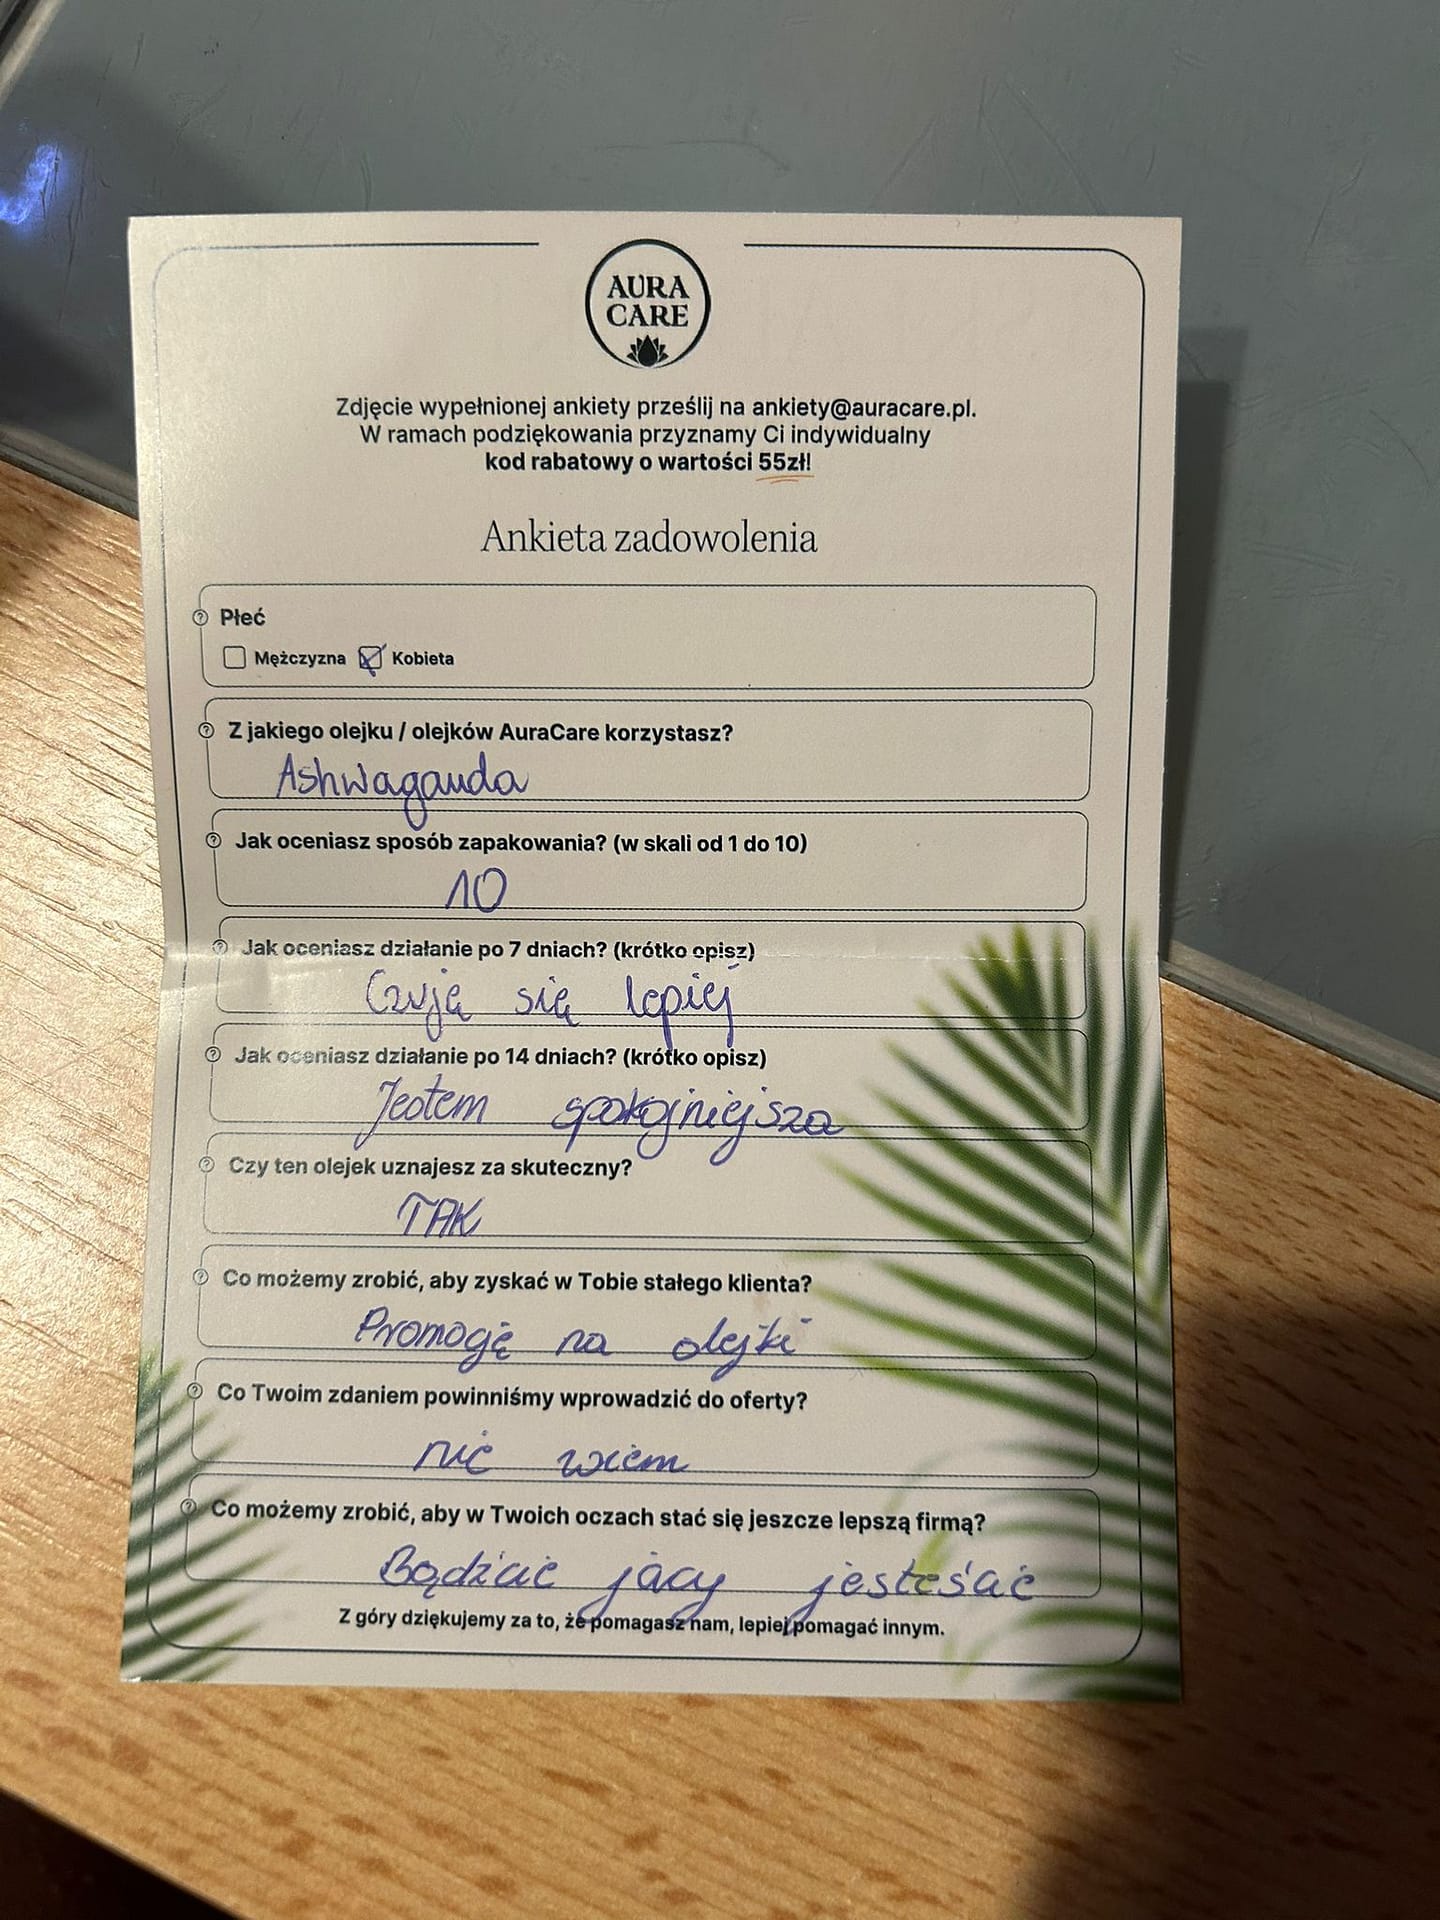 AURA
CARE
Zdjęcie wypełnionej ankiety prześlij na ankiety@auracare.pl.
W ramach podziękowania przyznamy Ci indywidualny
kod rabatowy o wartości 55zł!
Ankieta zadowolenia
Płeć
Mężczyzna Kobieta
Z jakiego olejku / olejków AuraCare korzystasz?
Ashwaganda
Jak oceniasz sposób zapakowania? (w skali od 1 do 10)
10
Jak oceniasz działanie po 7 dniach? (krótko opisz)
Czuję się lepiej
Jak oceniasz działanie po 14 dniach? (krótko opisz)
Jestem spokojniejsza
Czy ten olejek uznajesz za skuteczny?
TAK
Co możemy zrobić, aby zyskać w Tobie stałego klienta?
Promogję na olejki
Co Twoim zdaniem powinniśmy wprowadzić do oferty?
nie wiem
Co możemy zrobić, aby w Twoich oczach stać się jeszcze lepszą firmą?
Bądzcie jacy jesteście
Z góry dziękujemy za to, że pomagasz nam, lepiej pomagać innym.